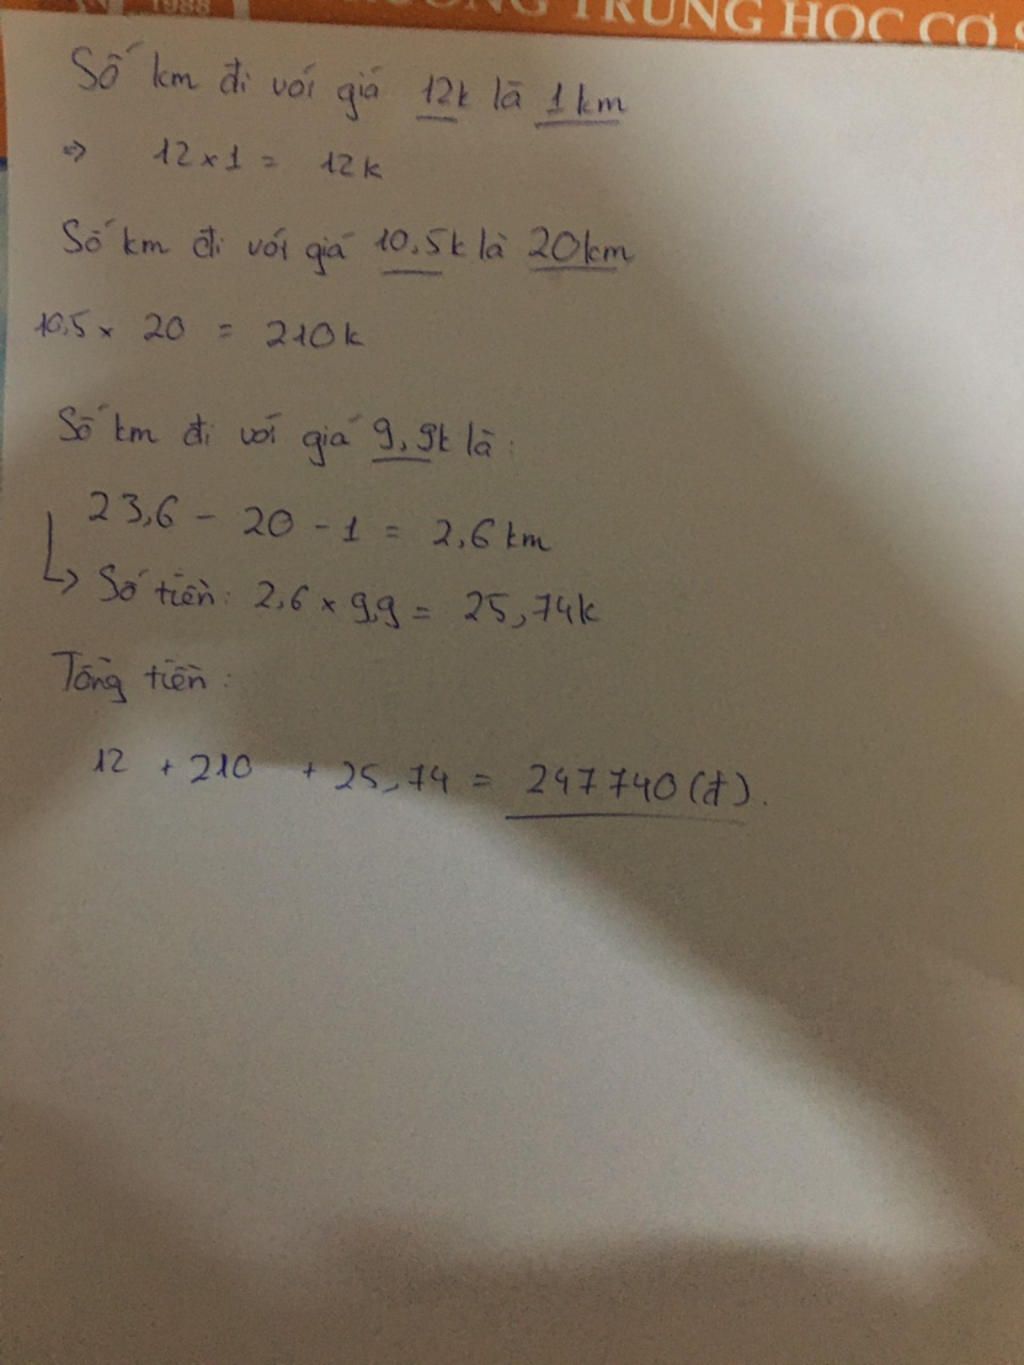 1988
TRUNG HỌC CƠ S
Số km đi với giá 12k là 1km
=> 12 x 1 = 12k
Số km đi với giá 10,5k là 20km
10,5 x 20 = 210k
Số km đi với giá 9,9k là:
23,6 - 20 - 1 = 2,6 km
↳ Số tiền: 2,6 x 9,9 = 25,74k
Tổng tiền:
12 + 210 + 25,74 = 247740 (đ).